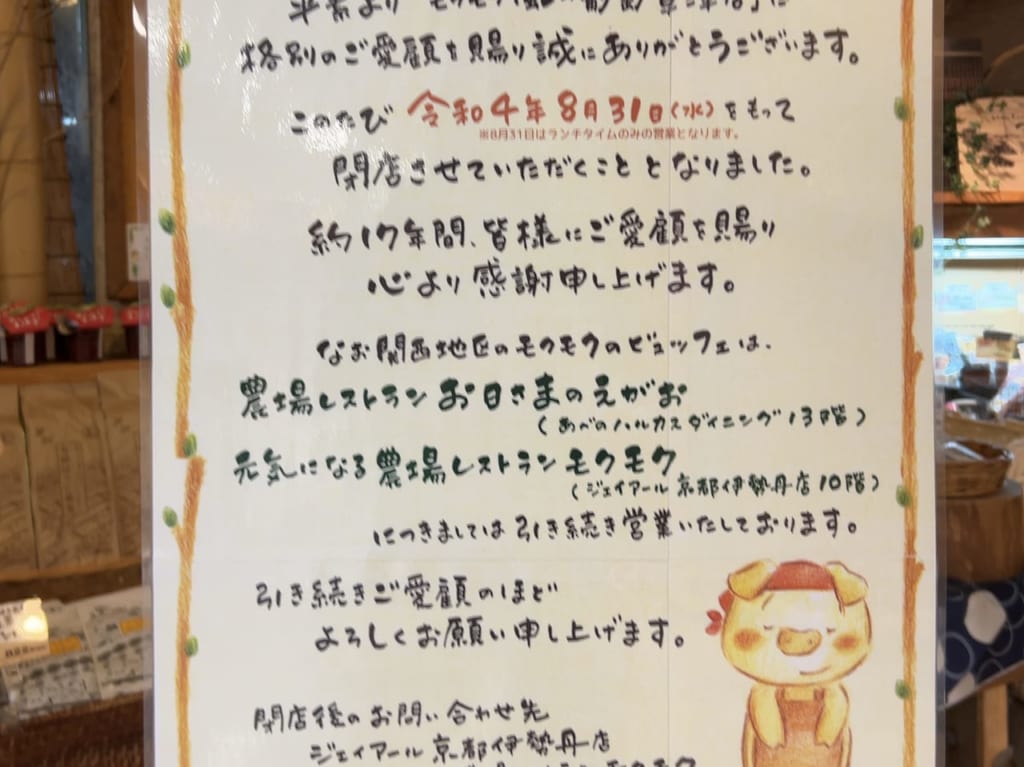 平素より
格別のご愛顧を賜り誠にありがとうございます。
このたび 令和4年8月31日(水)をもって
※8月31日はランチタイムのみの営業となります。
閉店させていただくこととなりました。
約17年間、皆様にご愛顧を賜り
心より感謝申し上げます。
なお関西地区のモクモクのビュッフェは、
農場レストラン お日さまのえがお
(あべのハルカスダイニング13階)
元気になる農場レストランモクモク
(ジェイアール京都伊勢丹店10階)
につきましては引き続き営業いたしております。
引き続きご愛顧のほど
よろしくお願い申し上げます。
閉店後のお問い合わせ先
ジェイアール京都伊勢丹店